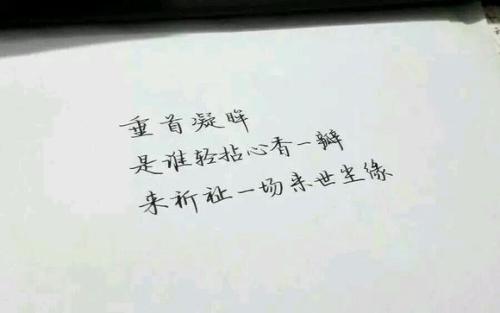 垂首凝眸
是谁轻拈心香一瓣
来祈祉一场来世尘缘